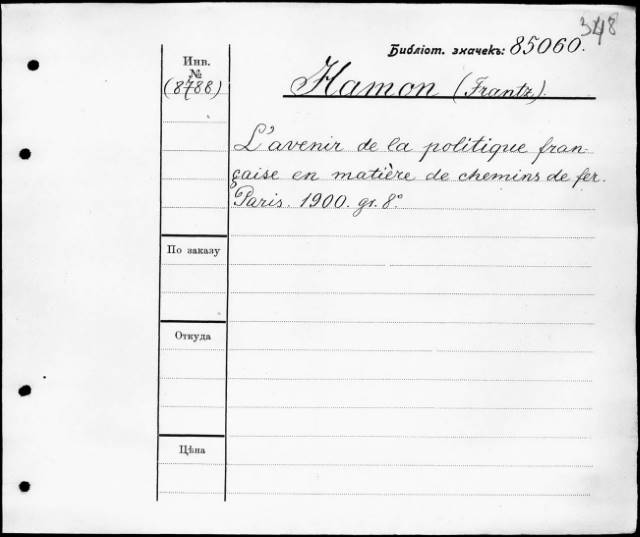 348
Библіот. значекъ: 85060.
Инв.
№
(8786)
Hamon (Frantz).
L'avenir de la politique fran-
çaise en matière de chemins de fer.
Paris. 1900. gr. 8°
По заказу
Откуда
Цѣна